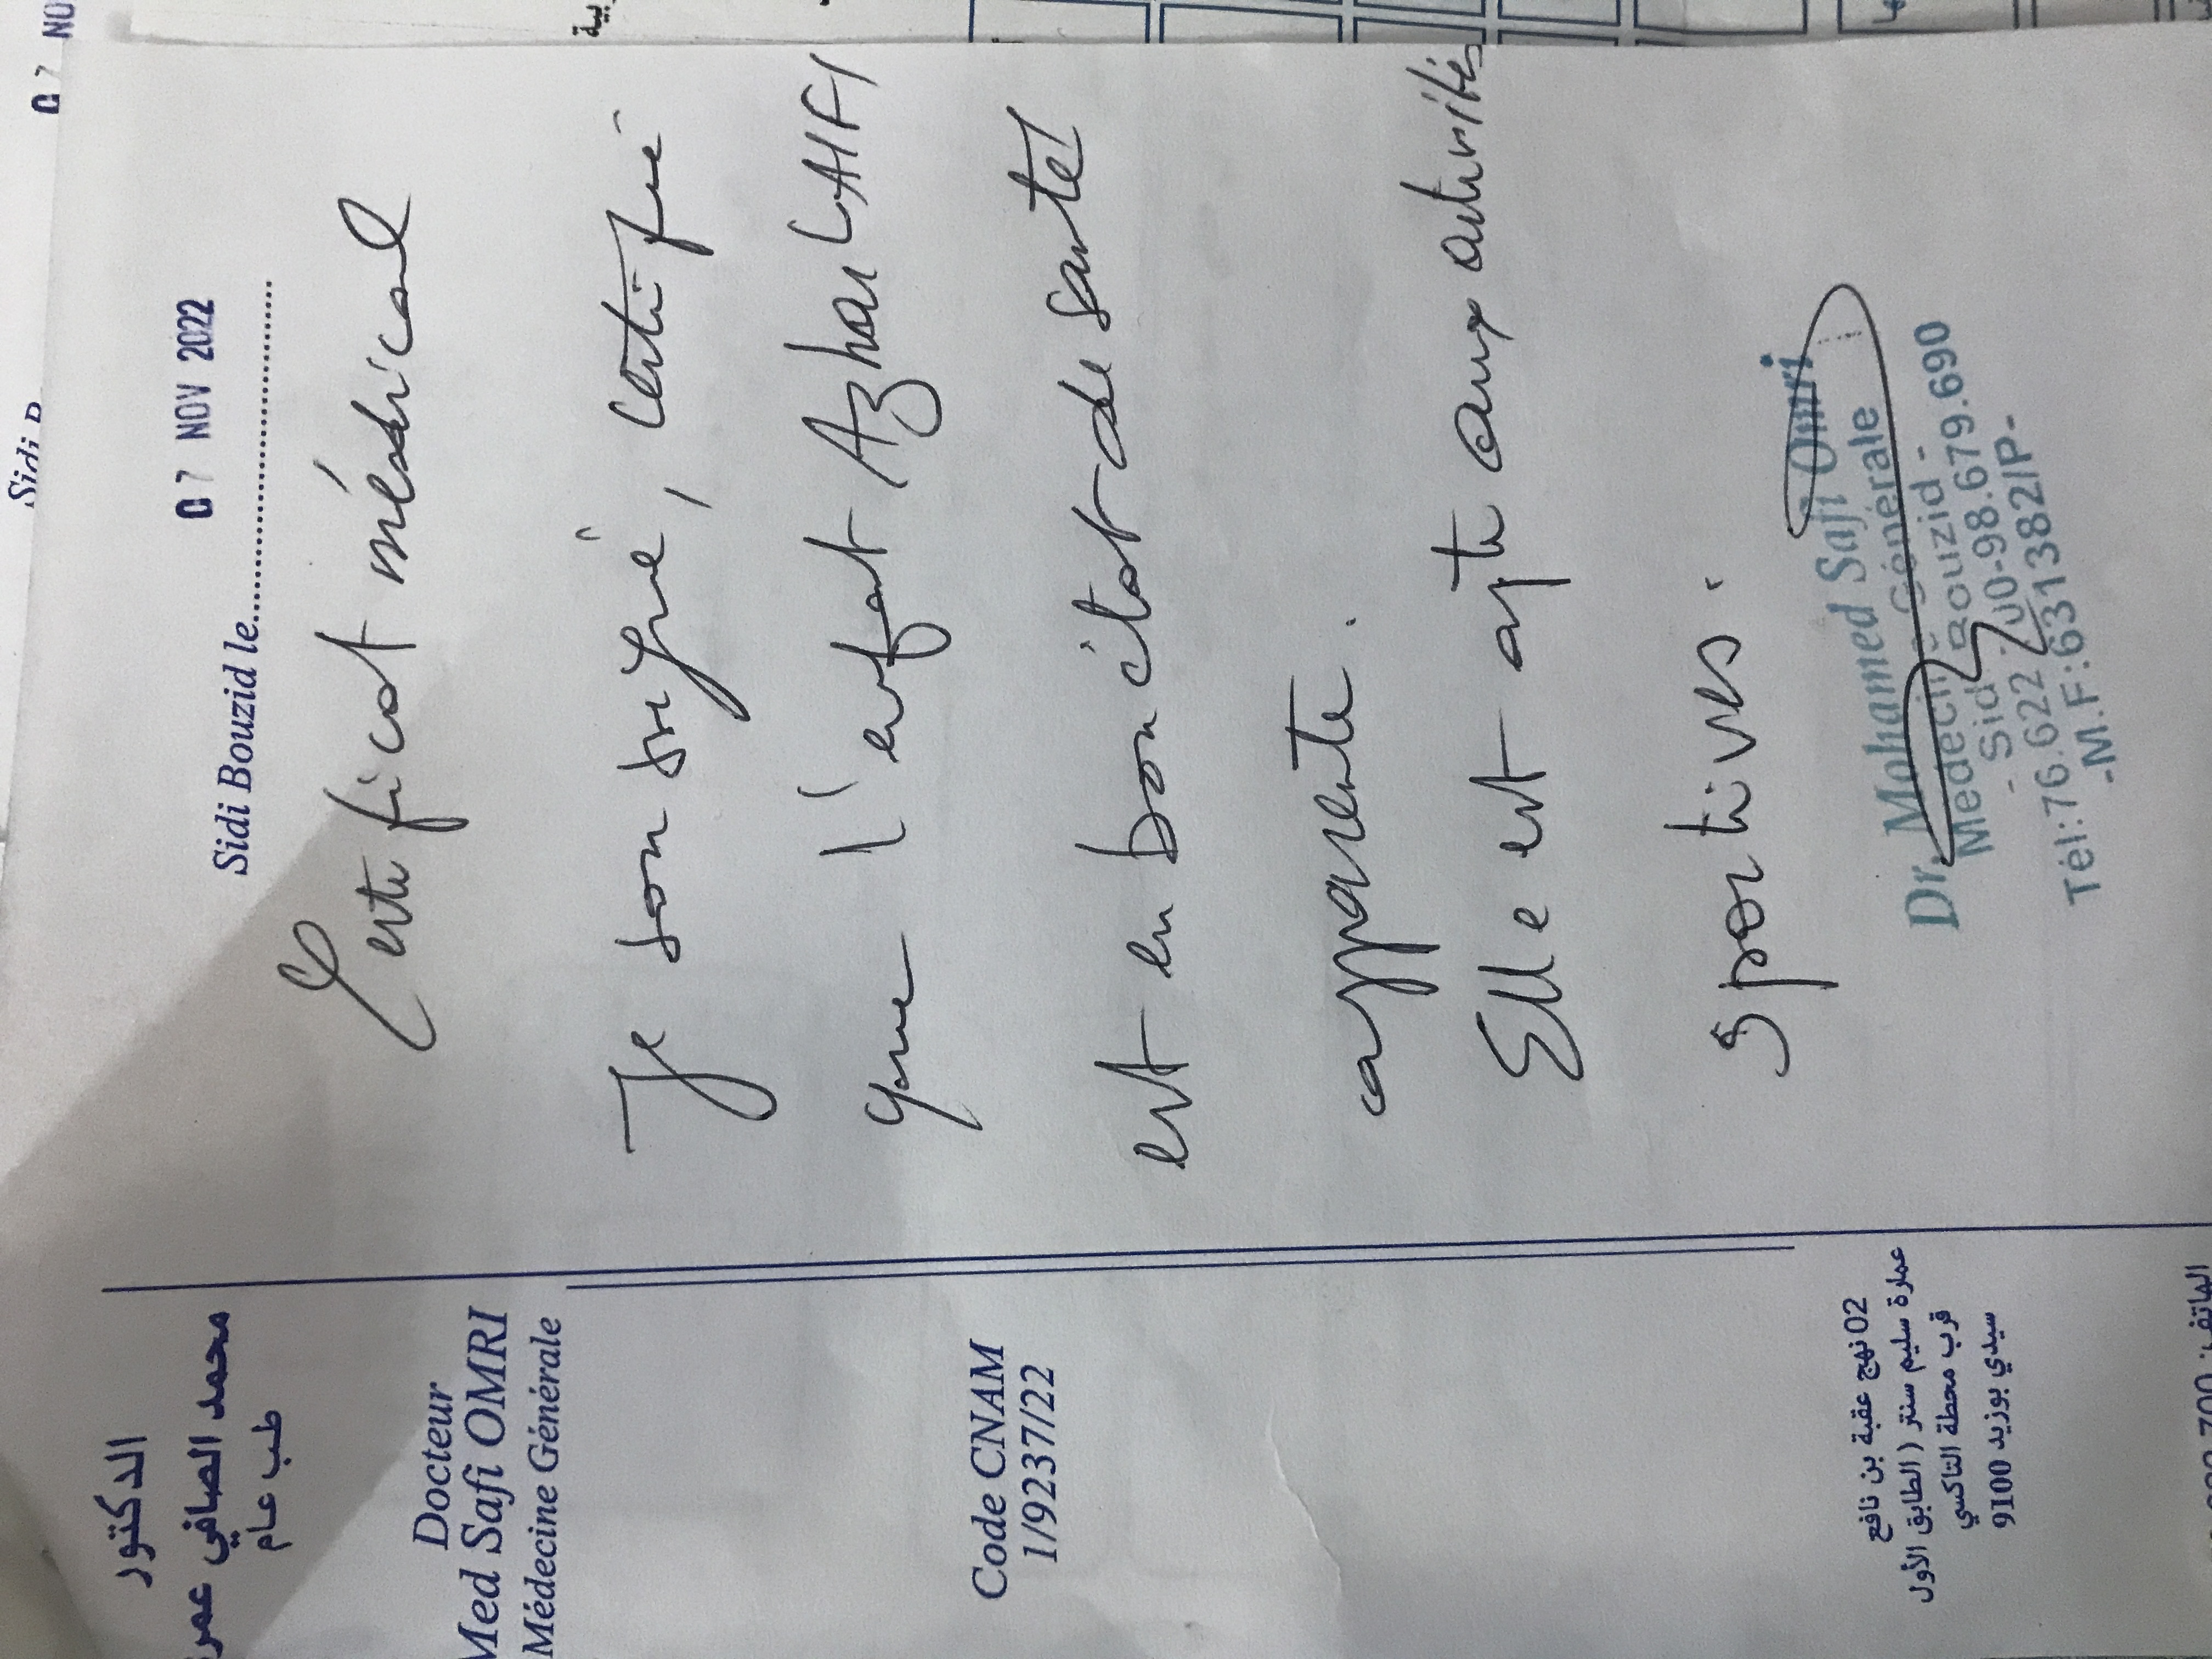 الدكتور
محمد الصافي عمري
طب عام
Docteur
Med Safi OMRI
Médecine Générale
Code CNAM
1/9237/22
02 نهج عقبة بن نافع
عمارة سليم سنتر ( الطابق الأول
قرب محطة التاكسي
سيدي بوزيد 9100
الهاتف:
Sidi Bouzid le
07 NOV 2022
Certificat médical
Je soussigné, certifie
que l'enfant Azhar
est en bon état de santé
apparente.
Elle est apte aux
sportives.
Dr. Mohamed Safi Omri
Médecine Générale
- Sidi Bouzid -
Tél:76.622.700-98.679.690
-M.F:631382/P-